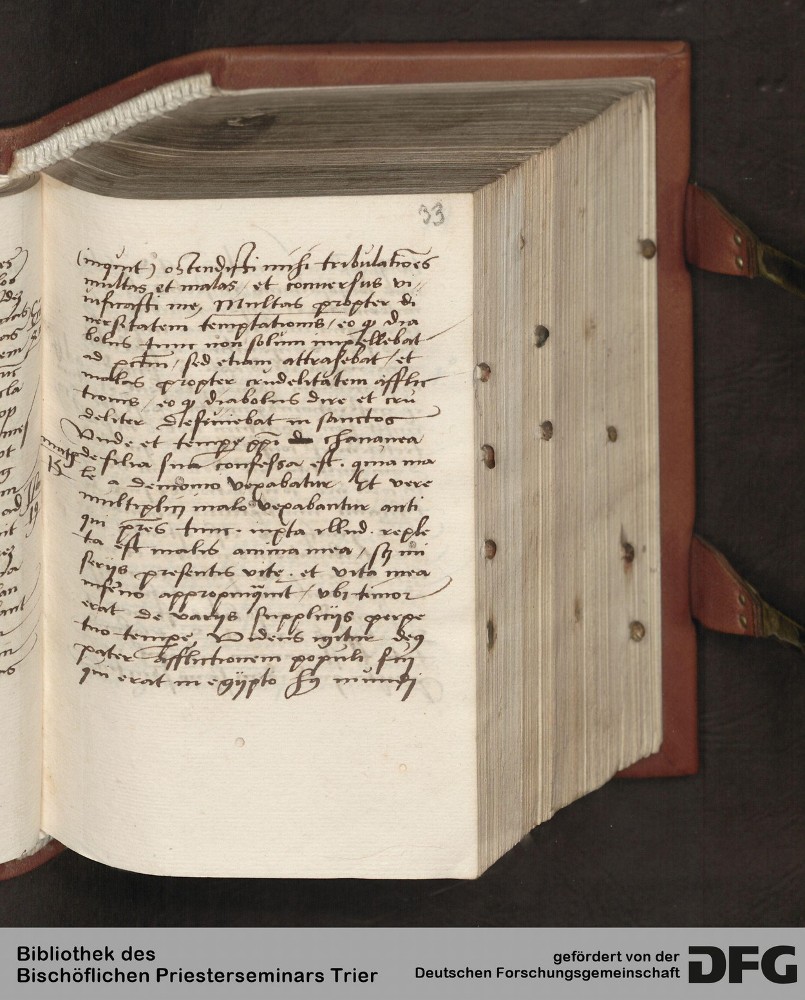 33
(inquit) ostendisti mihi tribulatiões
multas et malas, et conuersus vi
uificasti me, Multas propter di
uersitatem temptationis, eo ꝙ dia
bolus tunc non solum impellebat
ad pctm̄, sed etiam attrahebat, et
malas propter crudelitatem afflic
tionis, eo ꝙ diabolus dire et cru
deliter deseuiebat in sanctos
Vnde et tempe xp̄i chananea
math de filia sua confessa est. quia ma
15 le a demonio vexabatur. Et vere
multiplici malo vexabantur anti
qui pr̄es tunc. iuxta illud. reple
ta est malis anima mea, mi
serijs presentis vite. et vita mea
inferno appropinquit, vbi timor
erat de varijs supplicijs perpe
tuo tempe, Videns igitur deꝰ
pater afflictionem populi sui
qui erat in egÿpto mundi
Bibliothek des
Bischöflichen Priesterseminars Trier
gefördert von der
Deutschen Forschungsgemeinschaft
DFG